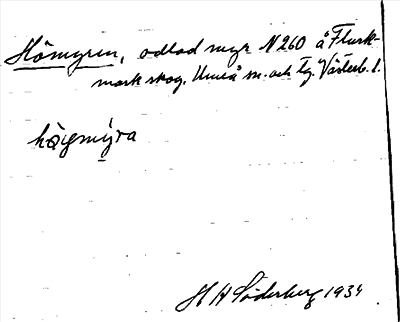 Hömyren, odlad myr N 260 å Flurk-
mark skog, Umeå sn. och tg. Västerb. l.
högmýra
H H Söderberg 1934